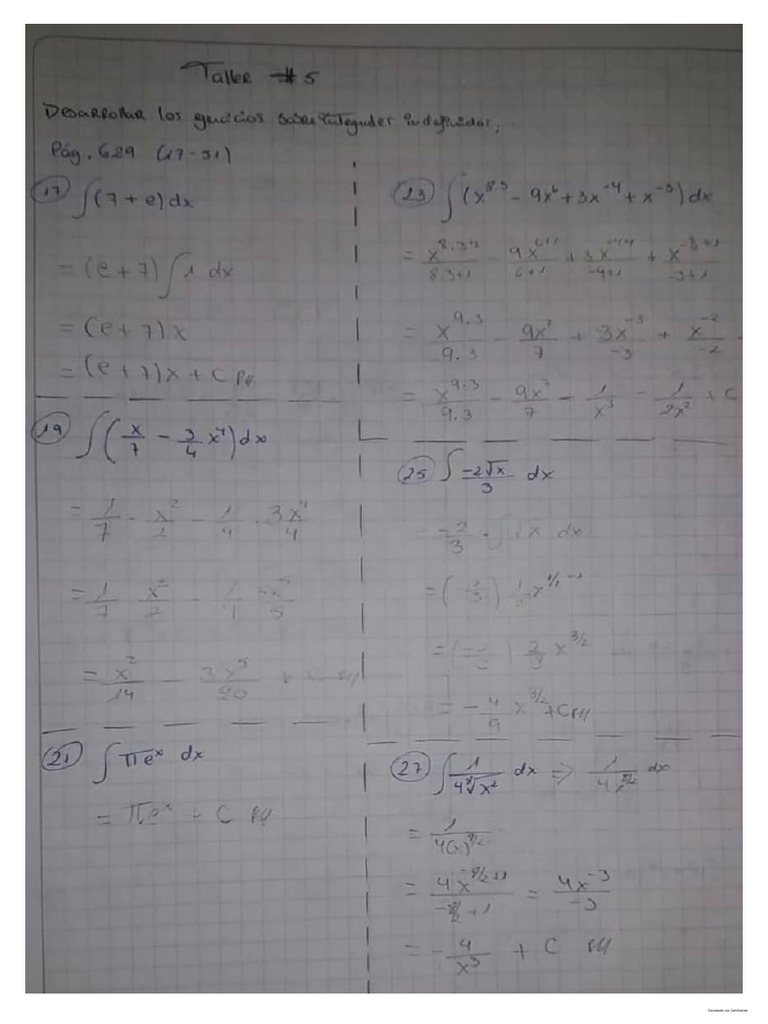 Taller #5
Desarrollar los ejercicios sobre integrales indefinidas,
Pág. 629 (17-51)
17 ∫(7 + e) dx
= (e + 7) ∫ 1 dx
= (e + 7) x
= (e + 7) x + C R//
19 ∫(x/7 - 3/4 x⁴) dx
= 1/7 · x²/2 - 1/4 ·
= 1/7 x²/2 - 1/4
= x²/14 - 3x⁵/20 + C R//
21 ∫ πeˣ dx
= πeˣ + C R//
23 ∫(x^8.3 - 9x⁶ + 3x⁻⁴ + x⁻³) dx
= x^8.3+1/8.3+1 - 9x^6+1/6+1 + 3x^-4+1/-4+1 + x^-3+1/-3+1
= x^9.3/9.3 - 9x⁷/7 + 3x⁻³/-3 + x⁻²/-2
= x^9.3/9.3 - 9x⁷/7 - 1/x³ - 1/2x² + C
25 ∫ -2√x/3 dx
= -2/3 · ∫ √x dx
= x^1/2
= 2/3 x^3/2
= -4/9 x^3/2 + C R//
27 ∫ 1/4 dx ⇒ 1/4x dx
= 1/4(x)
= 4x /+1 = 4x⁻³/-3
= - 4/x³ + C R//